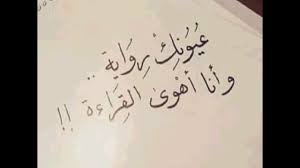 عُيُونُكِ رِوَاية ..
وأنا أهْوىٰ القِرَاءة !!